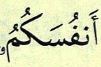 أَنفُسَكُمُۥ